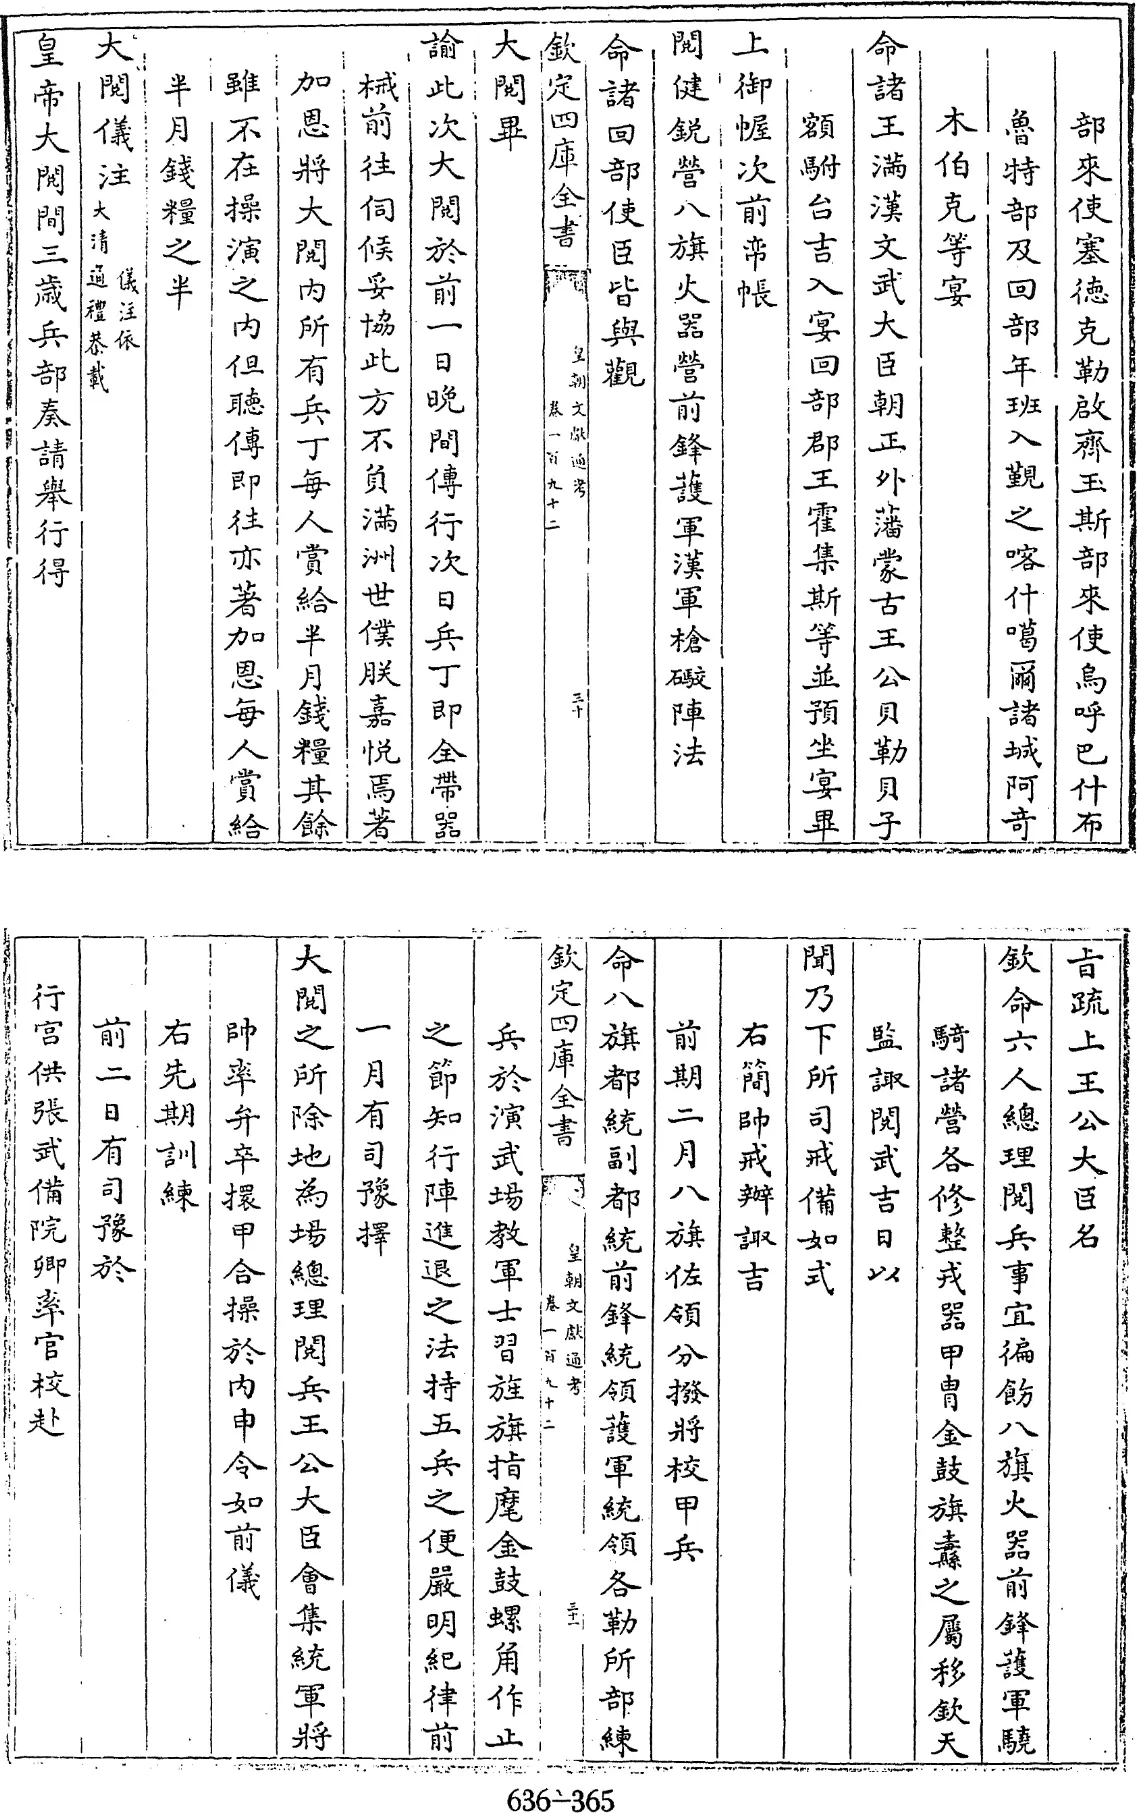 部來使塞德克勒啟齊玉斯部來使烏呼巴什布
魯特部及回部年班入覲之喀什噶爾諸城阿奇
木伯克等宴
命諸王滿漢文武大臣朝正外藩蒙古王公貝勒貝子
額駙台吉入宴回部郡王霍集斯等並預坐宴畢
上御幄次前帟帳
閱健銳營八旗火器營前鋒護軍漢軍槍礮陣法
命諸回部使臣皆與觀
欽定四庫全書
皇朝文獻通考
卷一百九十二
三十
大閱畢
諭此次大閱於前一日晚間傳行次日兵丁即全帶器
械前往伺候妥協此方不負滿洲世僕朕嘉悅焉著
加恩將大閱內所有兵丁每人賞給半月錢糧其餘
雖不在操演之內但聽傳即往亦著加恩每人賞給
半月錢糧之半
大閱儀注儀注依大清通禮恭載
皇帝大閱間三歲兵部奏請舉行得
旨疏上王公大臣名
欽命六人總理閱兵事宜徧飭八旗火器前鋒護軍驍
騎諸營各修整戎器甲冑金鼓旗纛之屬移欽天
監諏閱武吉日以
聞乃下所司戒備如式
右簡帥戒辦諏吉
前期二月八旗佐領分撥將校甲兵
命八旗都統副都統前鋒統領護軍統領各勒所部練
欽定四庫全書
皇朝文獻通考
卷一百九十二
三十一
兵於演武場教軍士習旌旗指麾金鼓螺角作止
之節知行陣進退之法持五兵之便嚴明紀律前
一月有司豫擇
大閱之所除地為場總理閱兵王公大臣會集統軍將
帥率弁卒擐甲合操於內申令如前儀
右先期訓練
前二日有司豫於
行宮供張武備院卿率官校赴
636-365